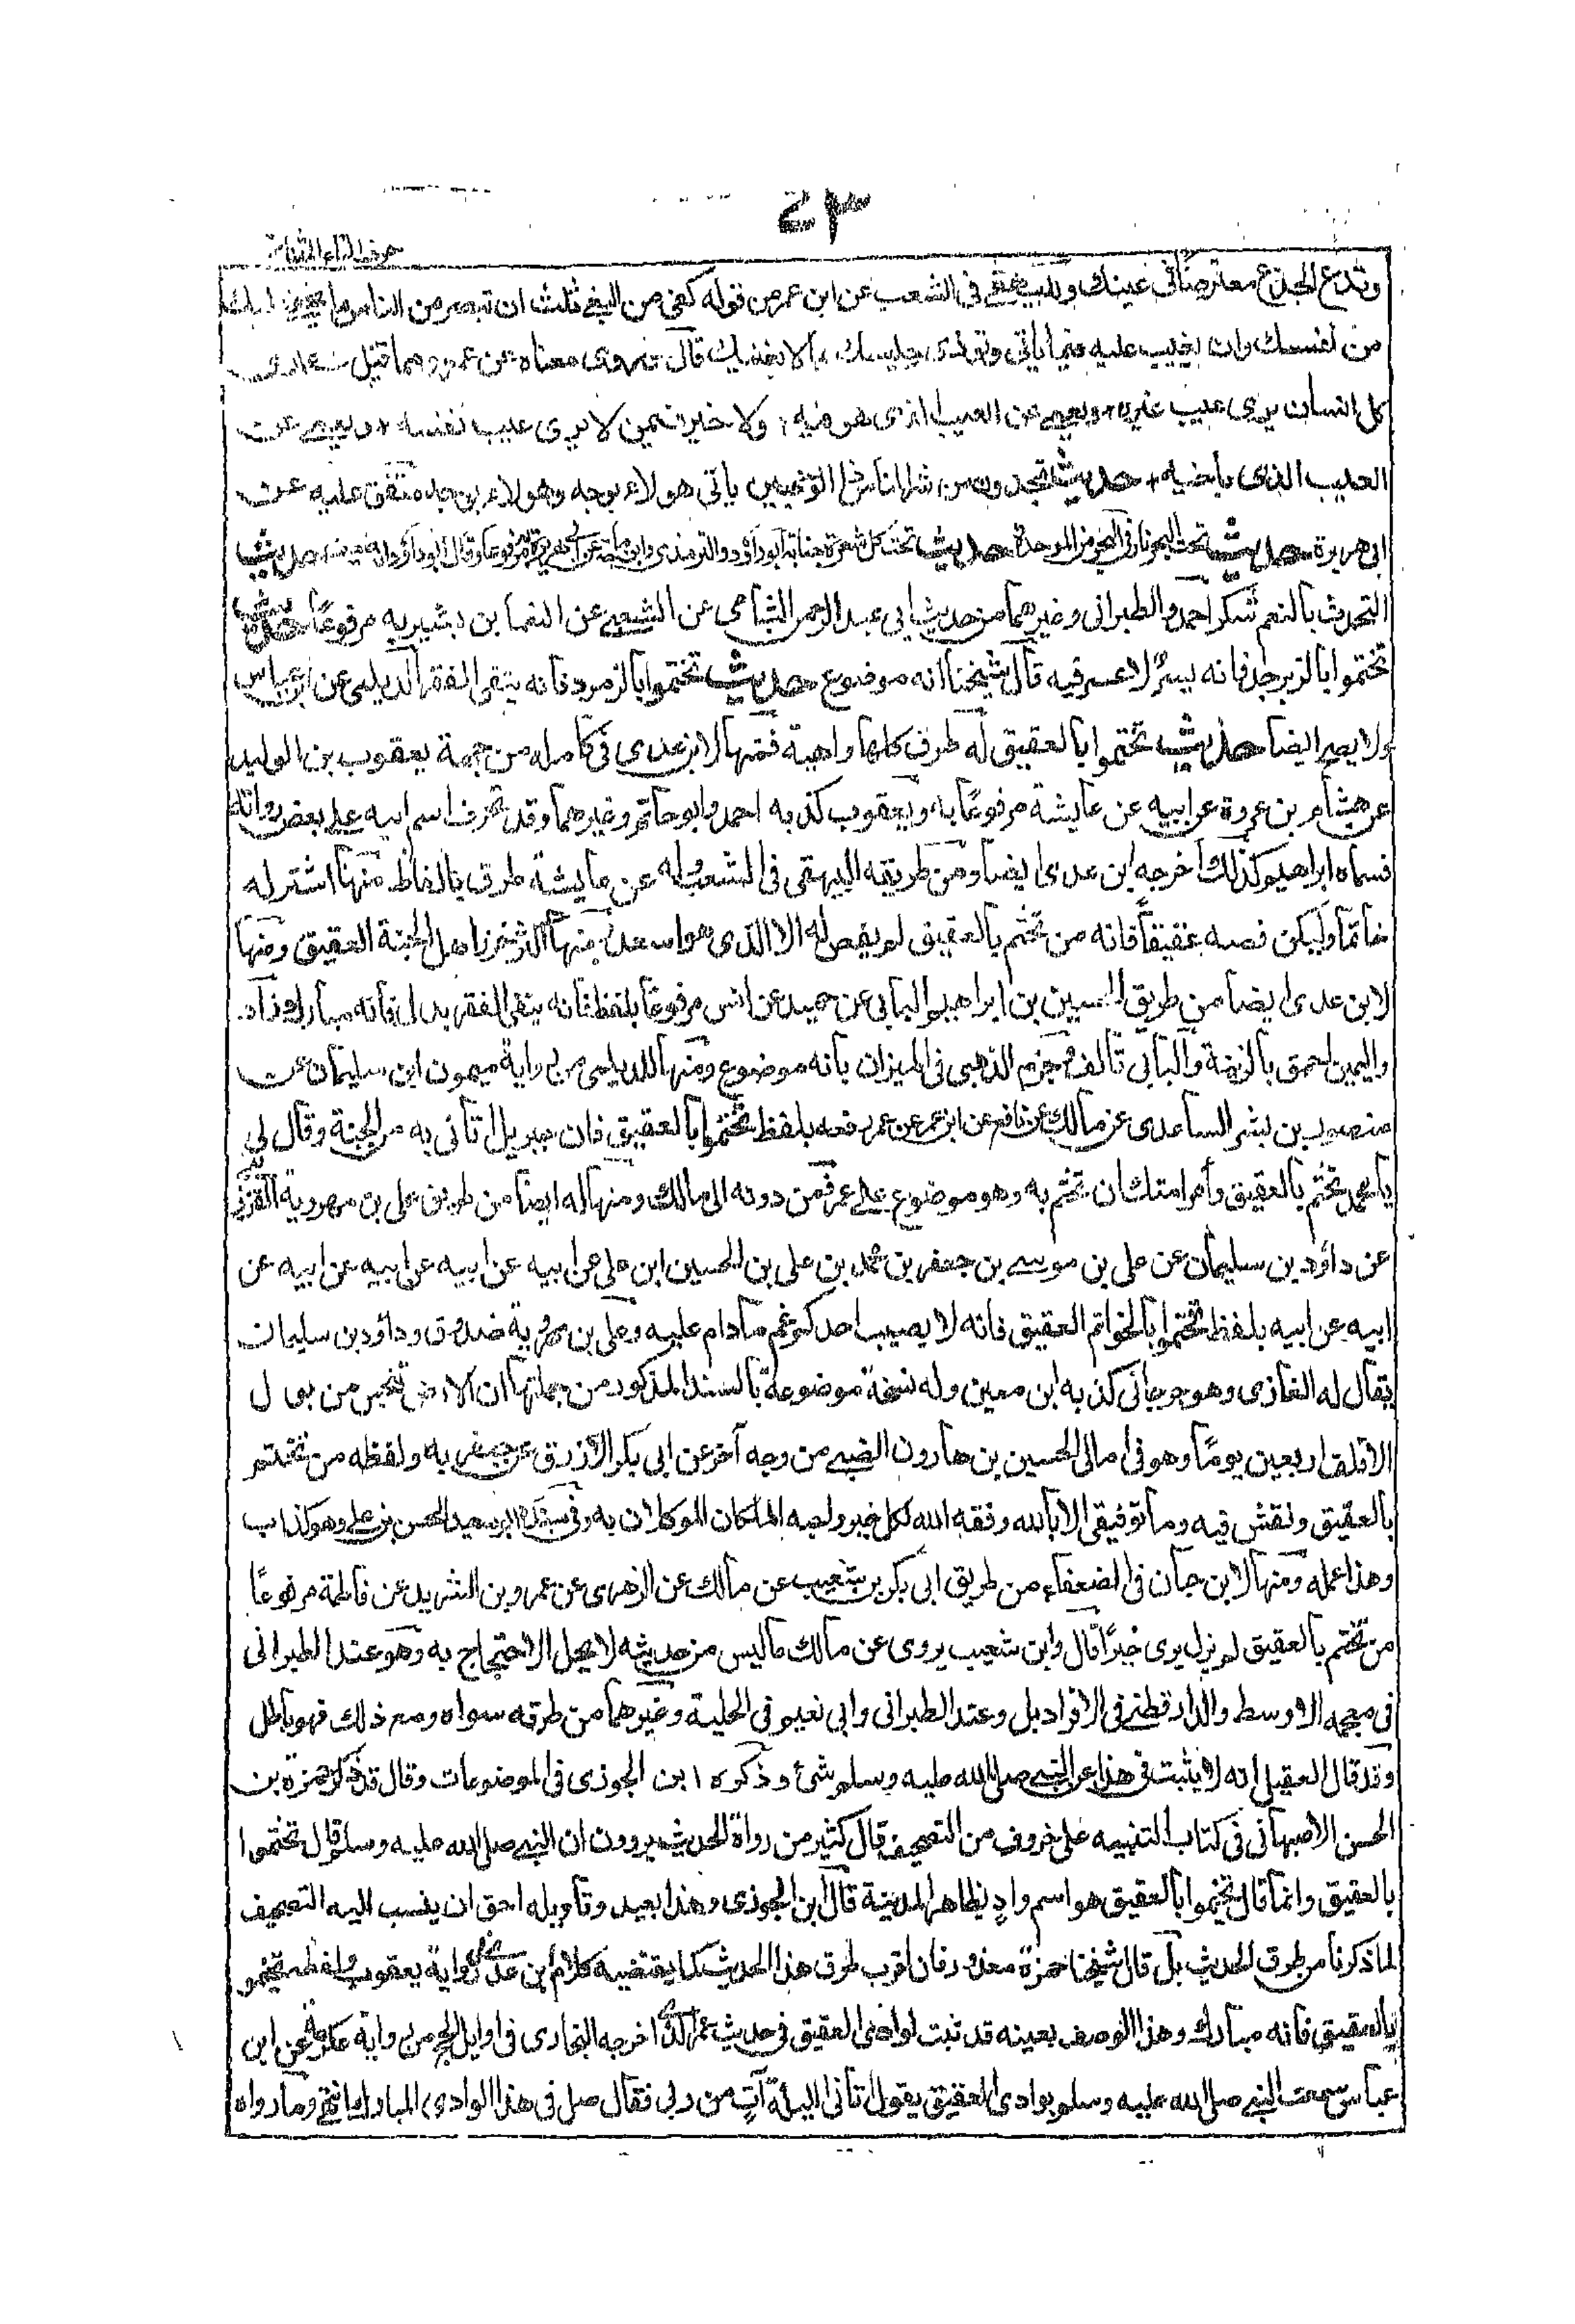 ٧٣
حرف التاء المثناة
وتدع الجذع معترضا في عينك وللبيهقي في الشعب عن ابن عمر من قوله كفى من الغي ثلث ان تبصر من الناس ما يخفى
من نفسك وان تعيب عليه فيما ياتي وتؤذي جليسك بما لا يعنيك قال وروى معناه عن عمر ومما قيل
كل انسان يرى عيب غيره ويعمى عن العيب الذي هو فيه ولا خير فيمن لا يرى عيب نفسه ويعمى عن
العيب الذي باخيه حديث تجدون من شر الناس ذا الوجهين ياتي هولاء بوجه وهولاء بوجه متفق عليه عن
ابي هريرة حديث تحت البحر نار في البحر من الموحدة حديث تحت كل شعرة جنابة ابوداؤد والترمذي وابن ماجة عن ابي هريرة مرفوعا وقال ابوداؤد انه ضعيف حديث
التحدث بالنعم شكر احمد والطبراني وغيرهما من حديث ابي عبد الرحمن الشامي عن الشعبي عن النعمان بن بشير به مرفوعًا حديث
تختموا بالزبرجد فانه يسرٌ لا عسر فيه قال شيخنا انه موضوع حديث تختموا بالزمرد فانه ينفى الفقر الديلمي عن ابن عباس
ولا يصح ايضا حديث تختموا بالعقيق له طرق كلها واهية فمنها لابن عدي في كامله من جهة يعقوب بن الوليد
عن هشام بن عروة عن ابيه عن عايشة مرفوعًا به ويعقوب كذبه احمد وابو حاتم وغيرهما وقد تحرف اسم ابيه على بعض رواته
فسماه ابراهيم كذلك اخرجه ابن عدي ايضا ومن طريقه البيهقي في الشعب وله عن عايشة طرق بالفاظ منها اشتر له
خاتما وليكن فصه عقيقاً فانه من تختم بالعقيق لم يقض له الا الذي هو اسعد ومنها اكثر خرز اهل الجنة العقيق ومنها
لابن عدي ايضا من طريق الحسين بن ابراهيم البابي عن حميد عن انس مرفوعا بلفظ فانه ينفى الفقر بدل فانه مبارك وزاد
واليمين احق بالزينة والبابي تالف وجزم الذهبي في الميزان بانه موضوع ومنها للديلمي من رواية ميمون ابن سليمان عن
منصور بن بشر الساعدي عن مالك عن نافع عن ابن عمر عن عمر رفعه بلفظ تختموا بالعقيق فان جبريل اتاني به من الجنة وقال لي
يا محمد تختم بالعقيق وأمر امتك ان تختم به وهو موضوع على عمر فمن دونه الى مالك ومنها له ايضا من طريق علي بن مهروية القزويني
عن داؤد بن سليمان عن علي بن موسى بن جعفر بن محمد بن علي بن الحسين ابن علي عن ابيه عن ابيه عن ابيه عن ابيه عن
ابيه عن ابيه بلفظ تختموا بالخواتم العقيق فانه لا يصيب احدكم غم مادام عليه وعلي بن مهروية صدوق وداؤد بن سليمان
يقال له الغازي وهو جرجاني كذبه ابن معين وله نسخة موضوعة بالسند المذكور من جملتها ان الارض تنجس من بول
الاقلف اربعين يومًا وهو في امالي الحسين بن هارون الضبي من وجه آخر عن ابي بكر الازرق عن جعفر به ولفظه من تختم
بالعقيق ونقش فيه وما توفيقي الا بالله وفقه الله لكل خير واحبه الملكان الموكلان به وفي سنده ابو سعيد الحسن بن علي وهو كذاب
وهذا عمله ومنها لابن حبان في الضعفاء من طريق ابي بكر بن شعيب عن مالك عن الزهري عن عمرو بن الشريد عن فاطمة مرفوعًا
من تختم بالعقيق لم يزل يرى خيرًا قال وابن شعيب يروى عن مالك ماليس من حديثه لا يحل الاحتجاج به وهو عند الطبراني
في معجمه الاوسط والدارقطني في الافراد بل وعند الطبراني وابي نعيم في الحلية وغيرهما من طرقه سواه ومع ذلك فهو باطل
وقد قال العقيلي انه لا يثبت في هذا عن النبي صلى الله عليه وسلم شئ وذكره ابن الجوزي في الموضوعات وقال قد ذكر حمزة بن
الحسن الاصبهاني في كتاب التنبيه على حروف من التصحيف قال كثير من رواة الحديث يروون ان النبي صلى الله عليه وسلم قال تختموا
بالعقيق وانما قال تخيموا بالعقيق هو اسم وادٍ بظاهر المدينة قال ابن الجوزي وهذا بعيد وتأويله احق ان ينسب اليه التصحيف
لما ذكرنا من طرق الحديث بل قال شيخنا حمزة معذور فان اقرب طرق هذا الحديث كما يقتضيه كلام ابن عدي رواية يعقوب ولفظه تخيموا
بالعقيق فانه مبارك وهذا الوصف بعينه قد ثبت لوادي العقيق في حديث عمر الذي اخرجه البخاري في اوايل الحج من رواية عكرمة عن ابن
عباس سمعت النبي صلى الله عليه وسلم بوادي العقيق يقول اتاني الليلة آتٍ من ربي فقال صل في هذا الوادي المبارك انتهى وما رواه